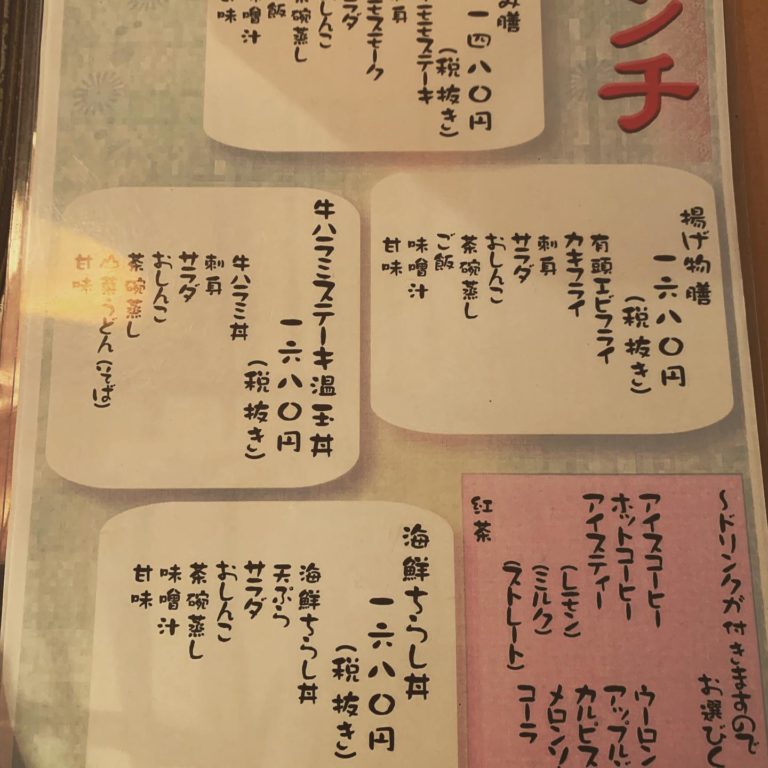 ンチ
み膳
一四八〇円
(税抜き)
モモステーキ
モモスモーク
刺身
サラダ
おしんこ
茶碗蒸し
ご飯
味噌汁
甘味
揚げ物膳
一六八〇円
(税抜き)
有頭エビフライ
カキフライ
刺身
サラダ
おしんこ
茶碗蒸し
ご飯
味噌汁
甘味
牛ハラミステーキ温玉丼
一六八〇円
(税抜き)
牛ハラミ丼
刺身
サラダ
おしんこ
茶碗蒸し
うどん(そば)
甘味
海鮮ちらし丼
一六八〇円
(税抜き)
海鮮ちらし丼
天ぷら
サラダ
おしんこ
茶碗蒸し
味噌汁
甘味
～ドリンクが付きますので
お選びく
アイスコーヒー
ホットコーヒー
アイスティー
(レモン)
(ミルク)
(ストレート)
紅茶
ウーロン
アップル
カルピス
メロンソ
コーラ